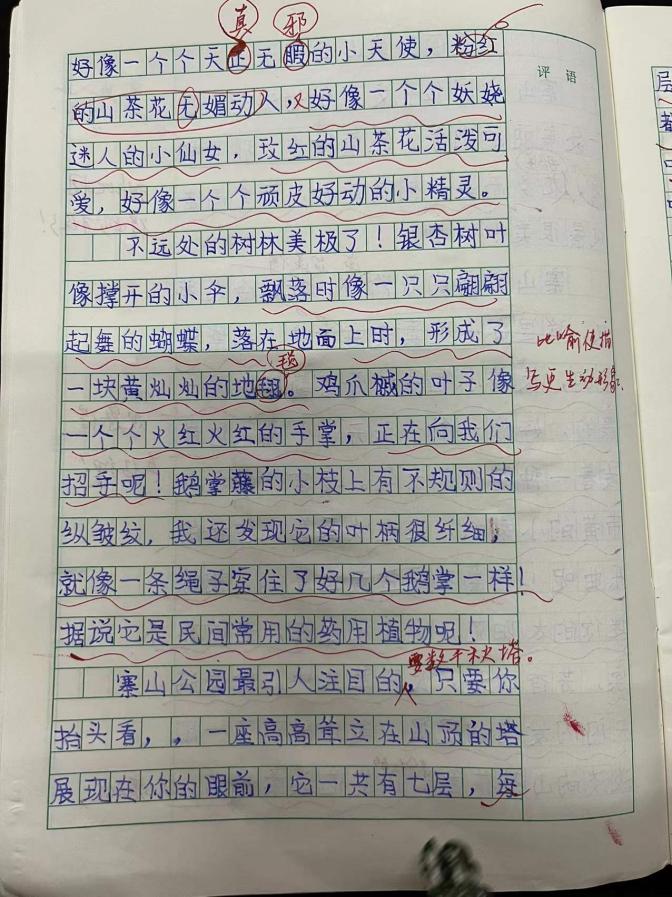 真 邪
好像一个个天正无暇的小天使，粉红
评语
的山茶花无媚动人，又好像一个个妖娆
迷人的小仙女，玫红的山茶花活泼可
爱，好像一个个顽皮好动的小精灵。
不远处的树林美极了！银杏树叶
像撑开的小伞，飘落时像一只只翩翩
起舞的蝴蝶，落在地面上时，形成了
比喻使描
写更生动形象
毯
一块黄灿灿的地。鸡爪槭的叶子像
一个个火红火红的手掌，正在向我们
招手呢！鹅掌藤的小枝上有不规则的
纵皱纹，我还发现它的叶柄很纤细，
就像一条绳子穿住了好几个鹅掌一样！
据说它是民间常用的药用植物呢！
要数千秋塔。
寨山公园最引人注目的，只要你
抬头看，，一座高高耸立在山顶的塔
展现在你的眼前，它一共有七层，每